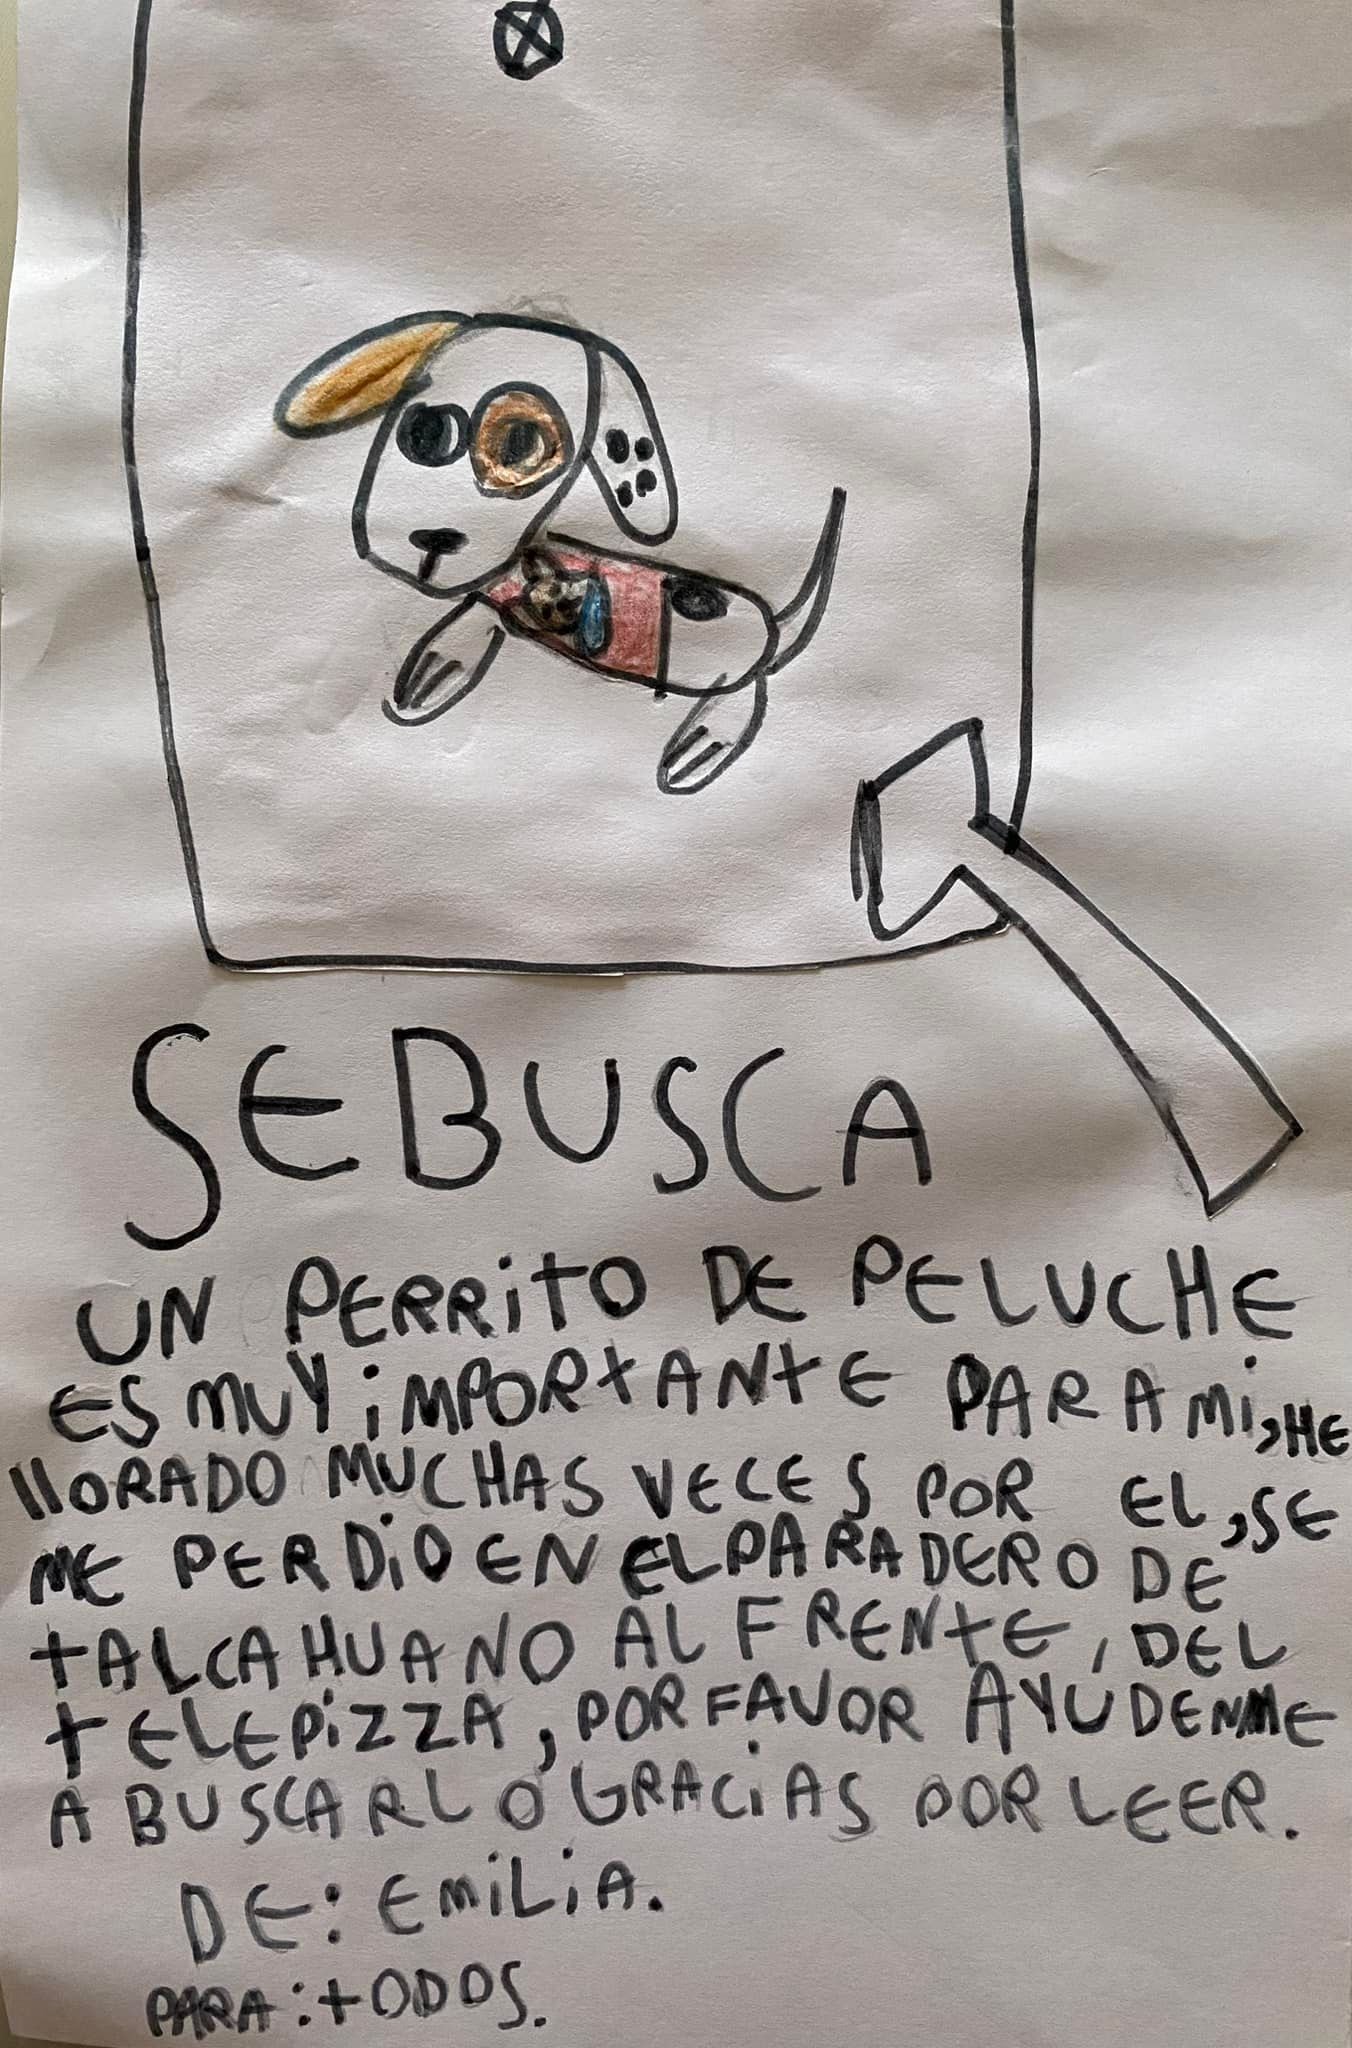 SE BUSCA
UN PERRiTO DE PELUCHE
ES MUY iMPORtANtE PARA Mi, HE
llORADO MUCHAS VECES POR EL, SE
ME PERDiO EN EL PARADERO DE
tALCAHUANO AL FRENtE, DEL
tELEPiZZA, POR FAVOR AYUDENME
A BUSCARLO GRACiAS POR LEER.
DE: EmiLiA.
PARA: tODOS.